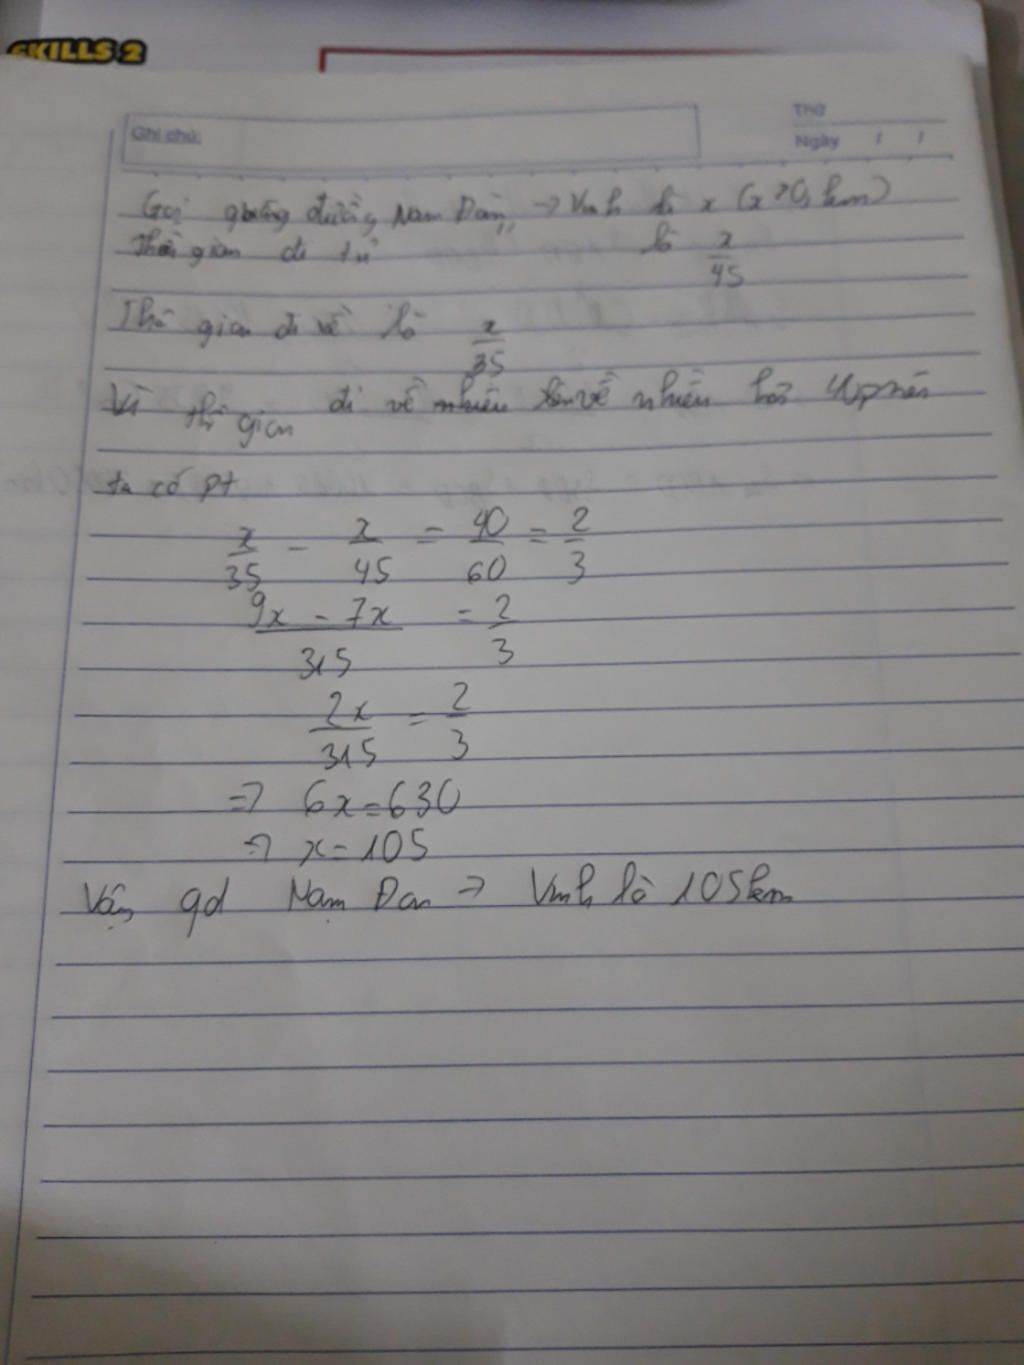 SKILLS 2
Ghi chú:
Thứ
Ngày / /
Gọi quãng đường Nam Đàn → Vinh là x (x>0, km)
Thời gian đi từ là x/45
Thời gian đi về là x/35
Vì thời gian đi về nhiều hơn 40p nên
ta có pt
x/35 - x/45 = 40/60 = 2/3
9x - 7x/315 = 2/3
2x/315 = 2/3
=> 6x = 630
=> x = 105
Vậy qd Nam Đan → Vinh là 105km